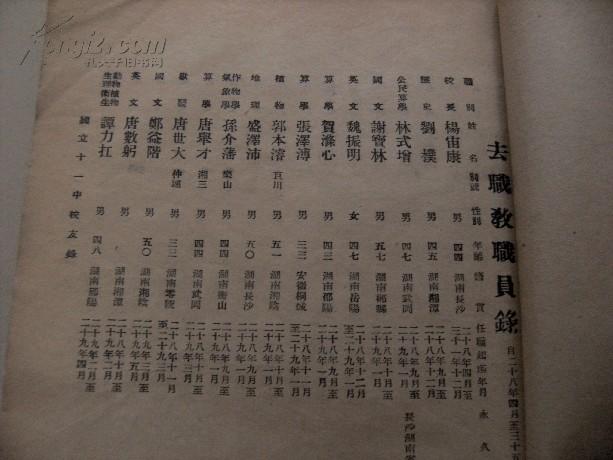 去職教職員錄 自二十八年四月至三十五
職別 姓名 別號 性別 年齡 籍貫 任職起迄年月 永久
校長 楊宙康 男 四四 湖南長沙 二十八年四月至三十一年十二月
歷史 劉樸 男 四五 湖南湘潭 二十八年九月至二十九年一月
公民算學 林式增 男 四七 湖南武岡 二十八年九月至二十九年一月 長沙湖南
國文 謝寶林 男 五七 湖南郴縣 二十八年十月至二十九年一月
英文 魏振明 女 四七 湖南岳陽 二十八年十二月至二十九年一月
算學 賀滌心 男 四三 湖南邵陽 二十八年九月至二十九年一月
算學 張澤溥 男 三三 安徽桐城 二十八年十一月至二十九年一月
植物 郭本濬 良川 男 五一 湖南湘陰 二十八年十月至二十九年一月
地理 盛澤沛 男 五〇 湖南長沙 二十八年九月至二十九年一月
作物學氣象學 孫介藩 樂山 男 四四 湖南衡山 二十八年十月至二十九年一月
算學 唐舉才 湘三 男 四四 湖南武岡 二十八年十月至二十九年三月
獸醫 唐世大 仲遠 男 三三 湖南零陵 二十八年十一月至二十九年三月
國文 鄭益階 男 五〇 湖南湘陰 二十九年三月至二十九年五月
英文 唐數躬 男 湖南湘潭 二十九年二月至二十九年二月
動物植物生理衛生 譚力扛 男 四八 湖南邵陽 二十八年十月至二十九年四月
國立十一中校友錄
Kongfz.com
孔夫子旧书网